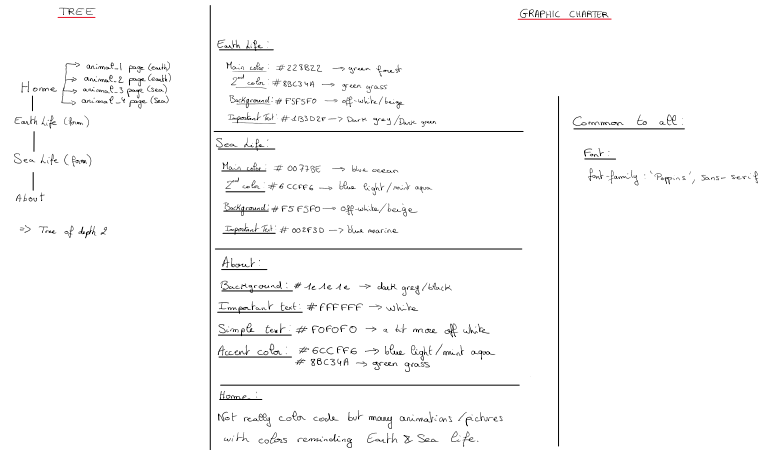 TREE
Home
animal_1 page (earth)
animal_2 page (earth)
animal_3 page (sea)
animal_4 page (sea)
Earth Life (form)
Sea Life (form)
About
=> Tree of depth 2
GRAPHIC CHARTER
Earth Life:
Main color: #228B22 → green forest
2nd color: #8BC34A → green grass
Background: #F5F5F0 → off-white/beige
Important Text: #1B3D2F → Dark grey/Dark green
Sea Life:
Main color: #00778E → blue ocean
2nd color: #6CCFF6 → blue light/mint aqua
Background: #F5F5F0 → off-white/beige
Important Text: #002F3D → blue marine
About:
Background: #1e1e1e → dark grey/black
Important text: #FFFFFF → white
Simple text: #F0F0F0 → a bit more off white
Accent color: #6CCFF6 → blue light/mint aqua
#8BC34A → green grass
Home:
Not really color code but many animations/pictures
with colors reminding Earth & Sea life.
Common to all:
Font:
font-family: 'Poppins', sans-serif